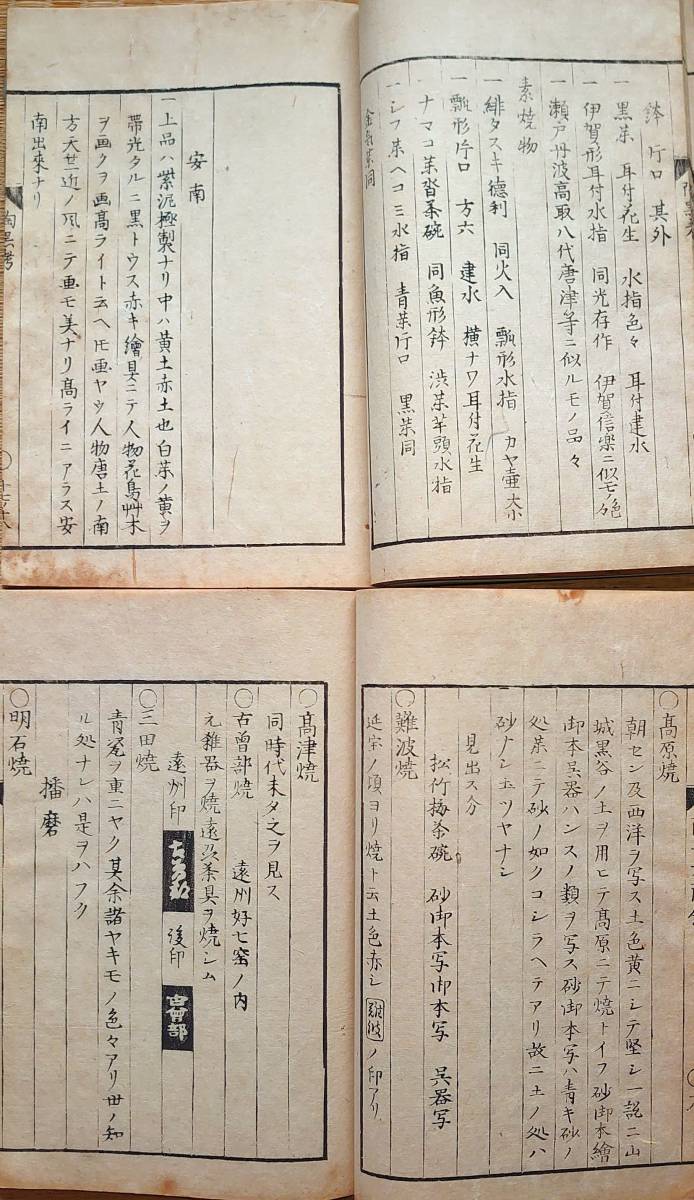 鉢 片口 其外
一 黒茶 耳付花生 水指色々 耳付建水
一 伊賀形耳付水指 同光存作 伊賀信楽ニ似モノ色々
一 瀬戸丹波高取八代唐津等ニ似ルモノ品々
素焼物
一 緋タスキ德利 同火入 瓢形水指 カヤ壷大小
一 瓢形片口 方六 建水 横ナワ耳付花生
ナマコ茶沓茶碗 同魚形鉢 渋茶芋頭水指
一 シブ茶ヘコミ水指 青茶片口 黒茶同
安南
一上品ハ紫泥極製ナリ中ハ黄土赤土也白茶ノ黄ヲ
帶光タルニ黒トウス赤キ繪具ニテ人物花鳥艸木
ヲ画クヲ画髙ライト云ヘ𪜈画ヤウ人物唐土ノ南
方天竺近ノ風ニテ画モ美ナリ髙ライニアラス安
南出來ナリ
陶器考
〇髙原焼
朝セン及西洋ヲ写ス土色黄ニシテ堅シ一説ニ山
城黒谷ノ土ヲ用ヒテ髙原ニテ焼トイフ砂御本繪
御本呉器ハンスノ類ヲ写ス砂御本写ハ青キ砂ノ
処茶ニテ砂ノ如クコシラヘテアリ故ニ土ノ処ハ
砂ナシ土ツヤナシ
見出ス分
松竹梅茶碗 砂御本写御本写 呉器写
〇難波焼
延宝ノ頃ヨリ焼ト云土色赤シ 難波 ノ印アリ
〇髙津焼
同時代未タ之ヲ見ス
〇古曽部焼 遠州好七窑ノ内
元雜器ヲ焼遠州茶具ヲ焼シム
遠州印 後印 古曾部
〇三田焼
青窑ヲ重ニヤク其余諸ヤキモノ色々アリ世ノ知
ル処ナレハ是ヲハフク
播磨
〇明石焼